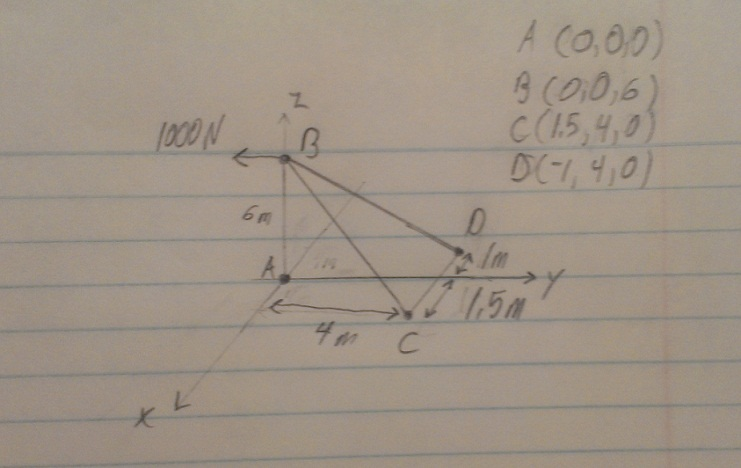 A (0,0,0)
B (0,0,6)
C (1.5,4,0)
D (-1,4,0)
Z
1000N
B
6m
D
A
1m
1m
Y
1.5m
4m
C
X